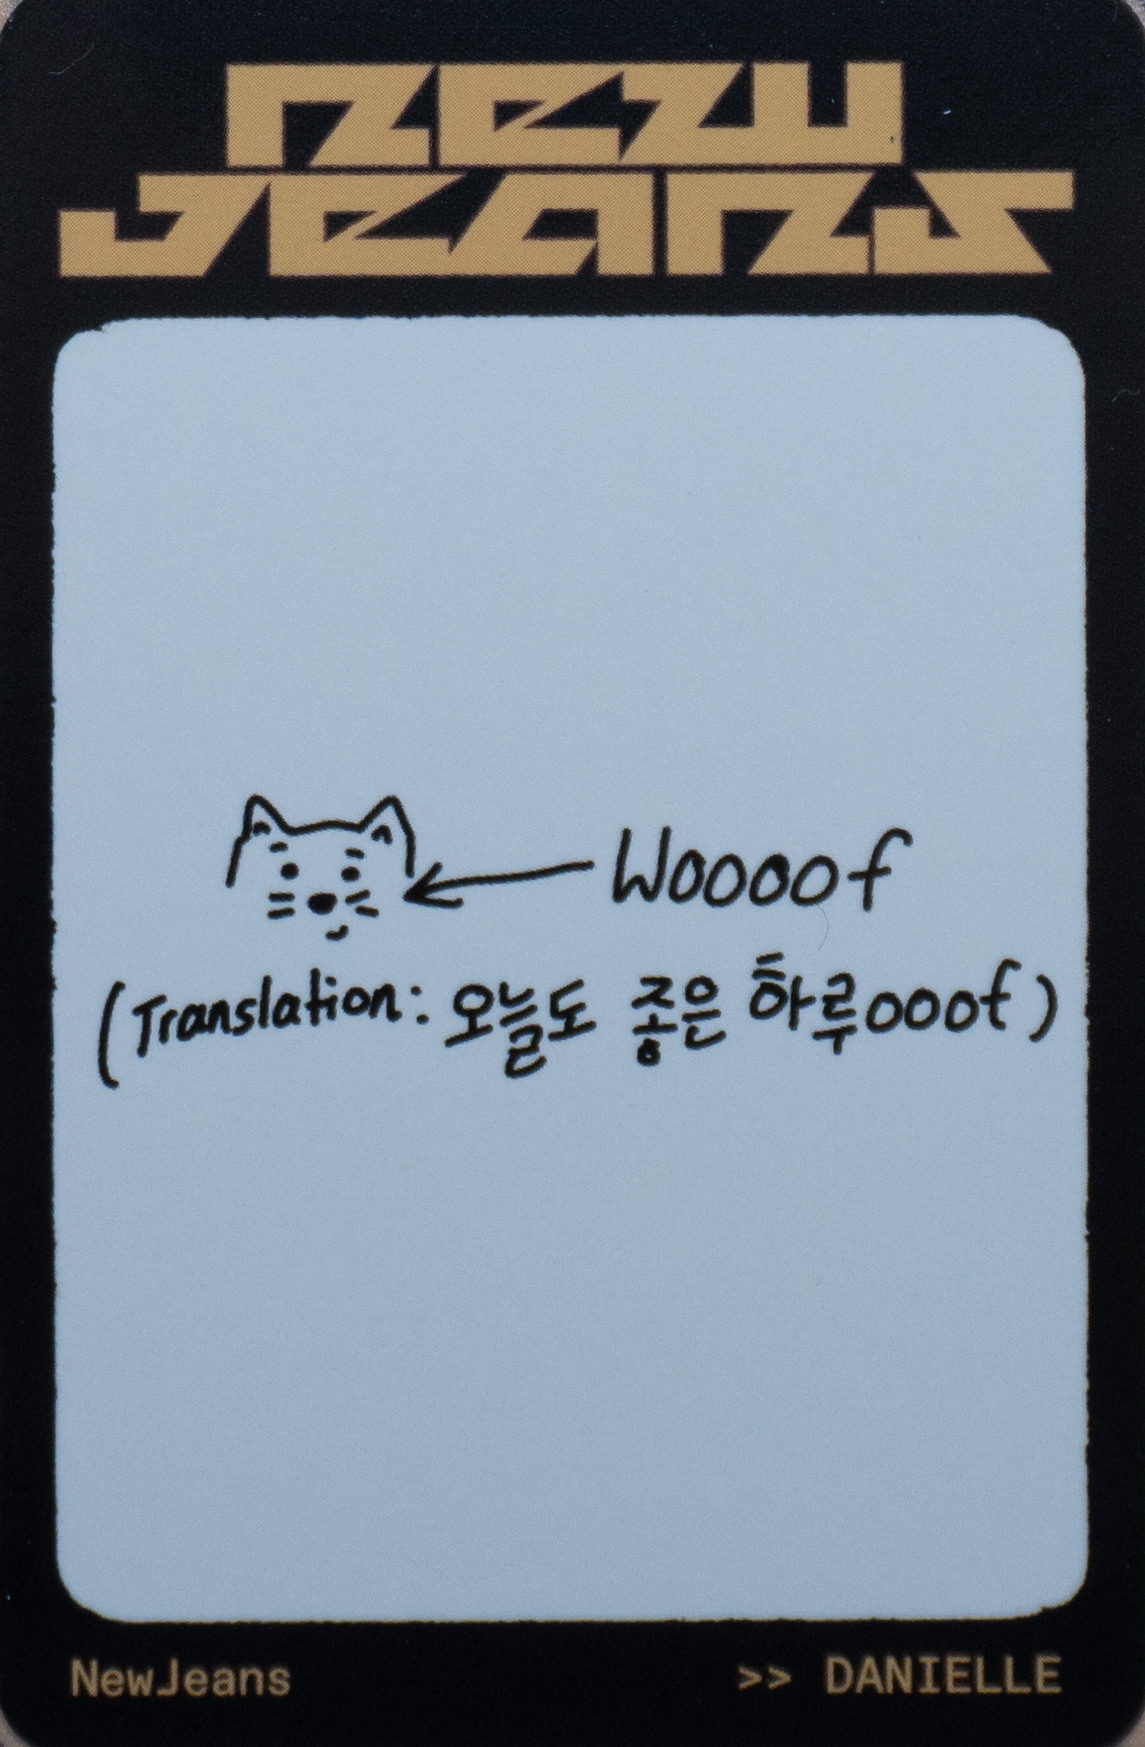 new
jeans
Woooof
(Translation: 오늘도 좋은 하루ooof)
NewJeans >> DANIELLE